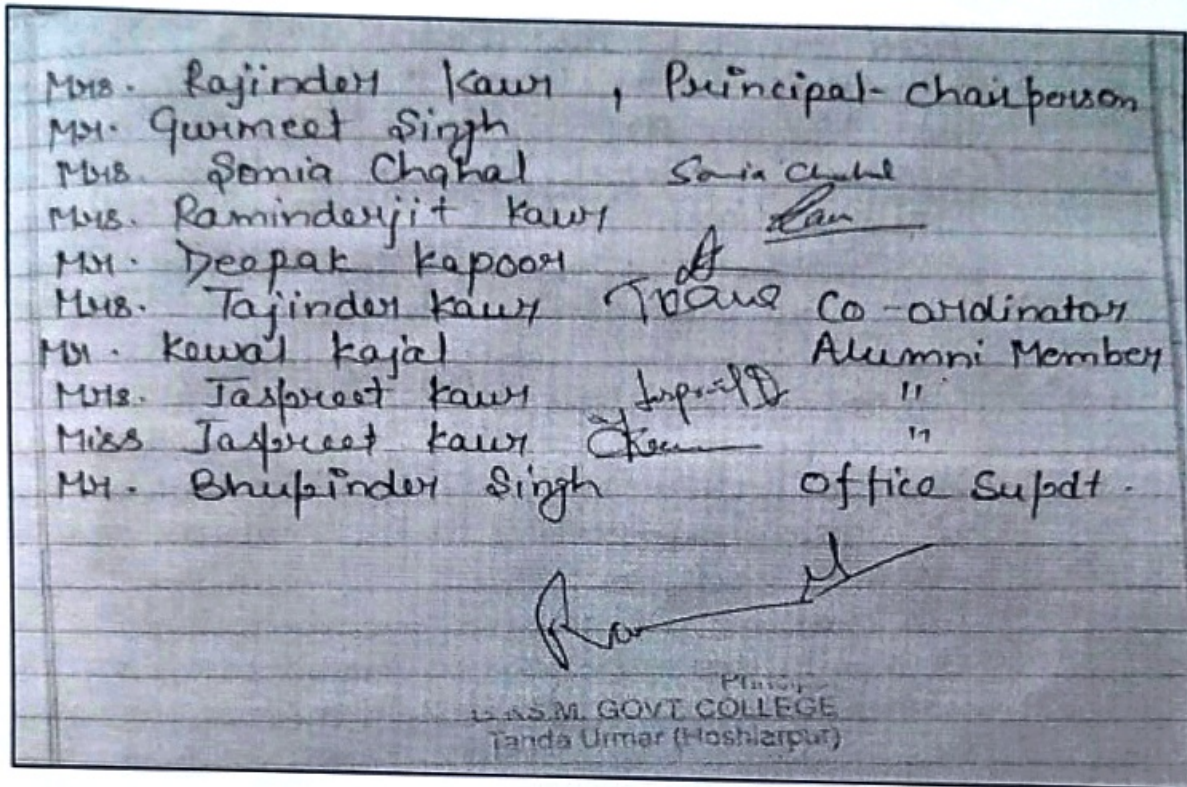 Mrs. Rajinder Kaur , Principal- Chairperson
Mr. Gurmeet Singh
Mrs. Sonia Chahal Sonia Chahal
Mrs. Raminderjit Kaur
Mr. Deepak Kapoor
Mrs. Tajinder Kaur Co-ordinator
Mr. Kewal Kajal Alumni Member
Mrs. Jaspreet Kaur "
Miss Jaspreet Kaur "
Mr. Bhupinder Singh Office Supdt.
GOVT COLLEGE
Tanda Urmar (Hoshiarpur)